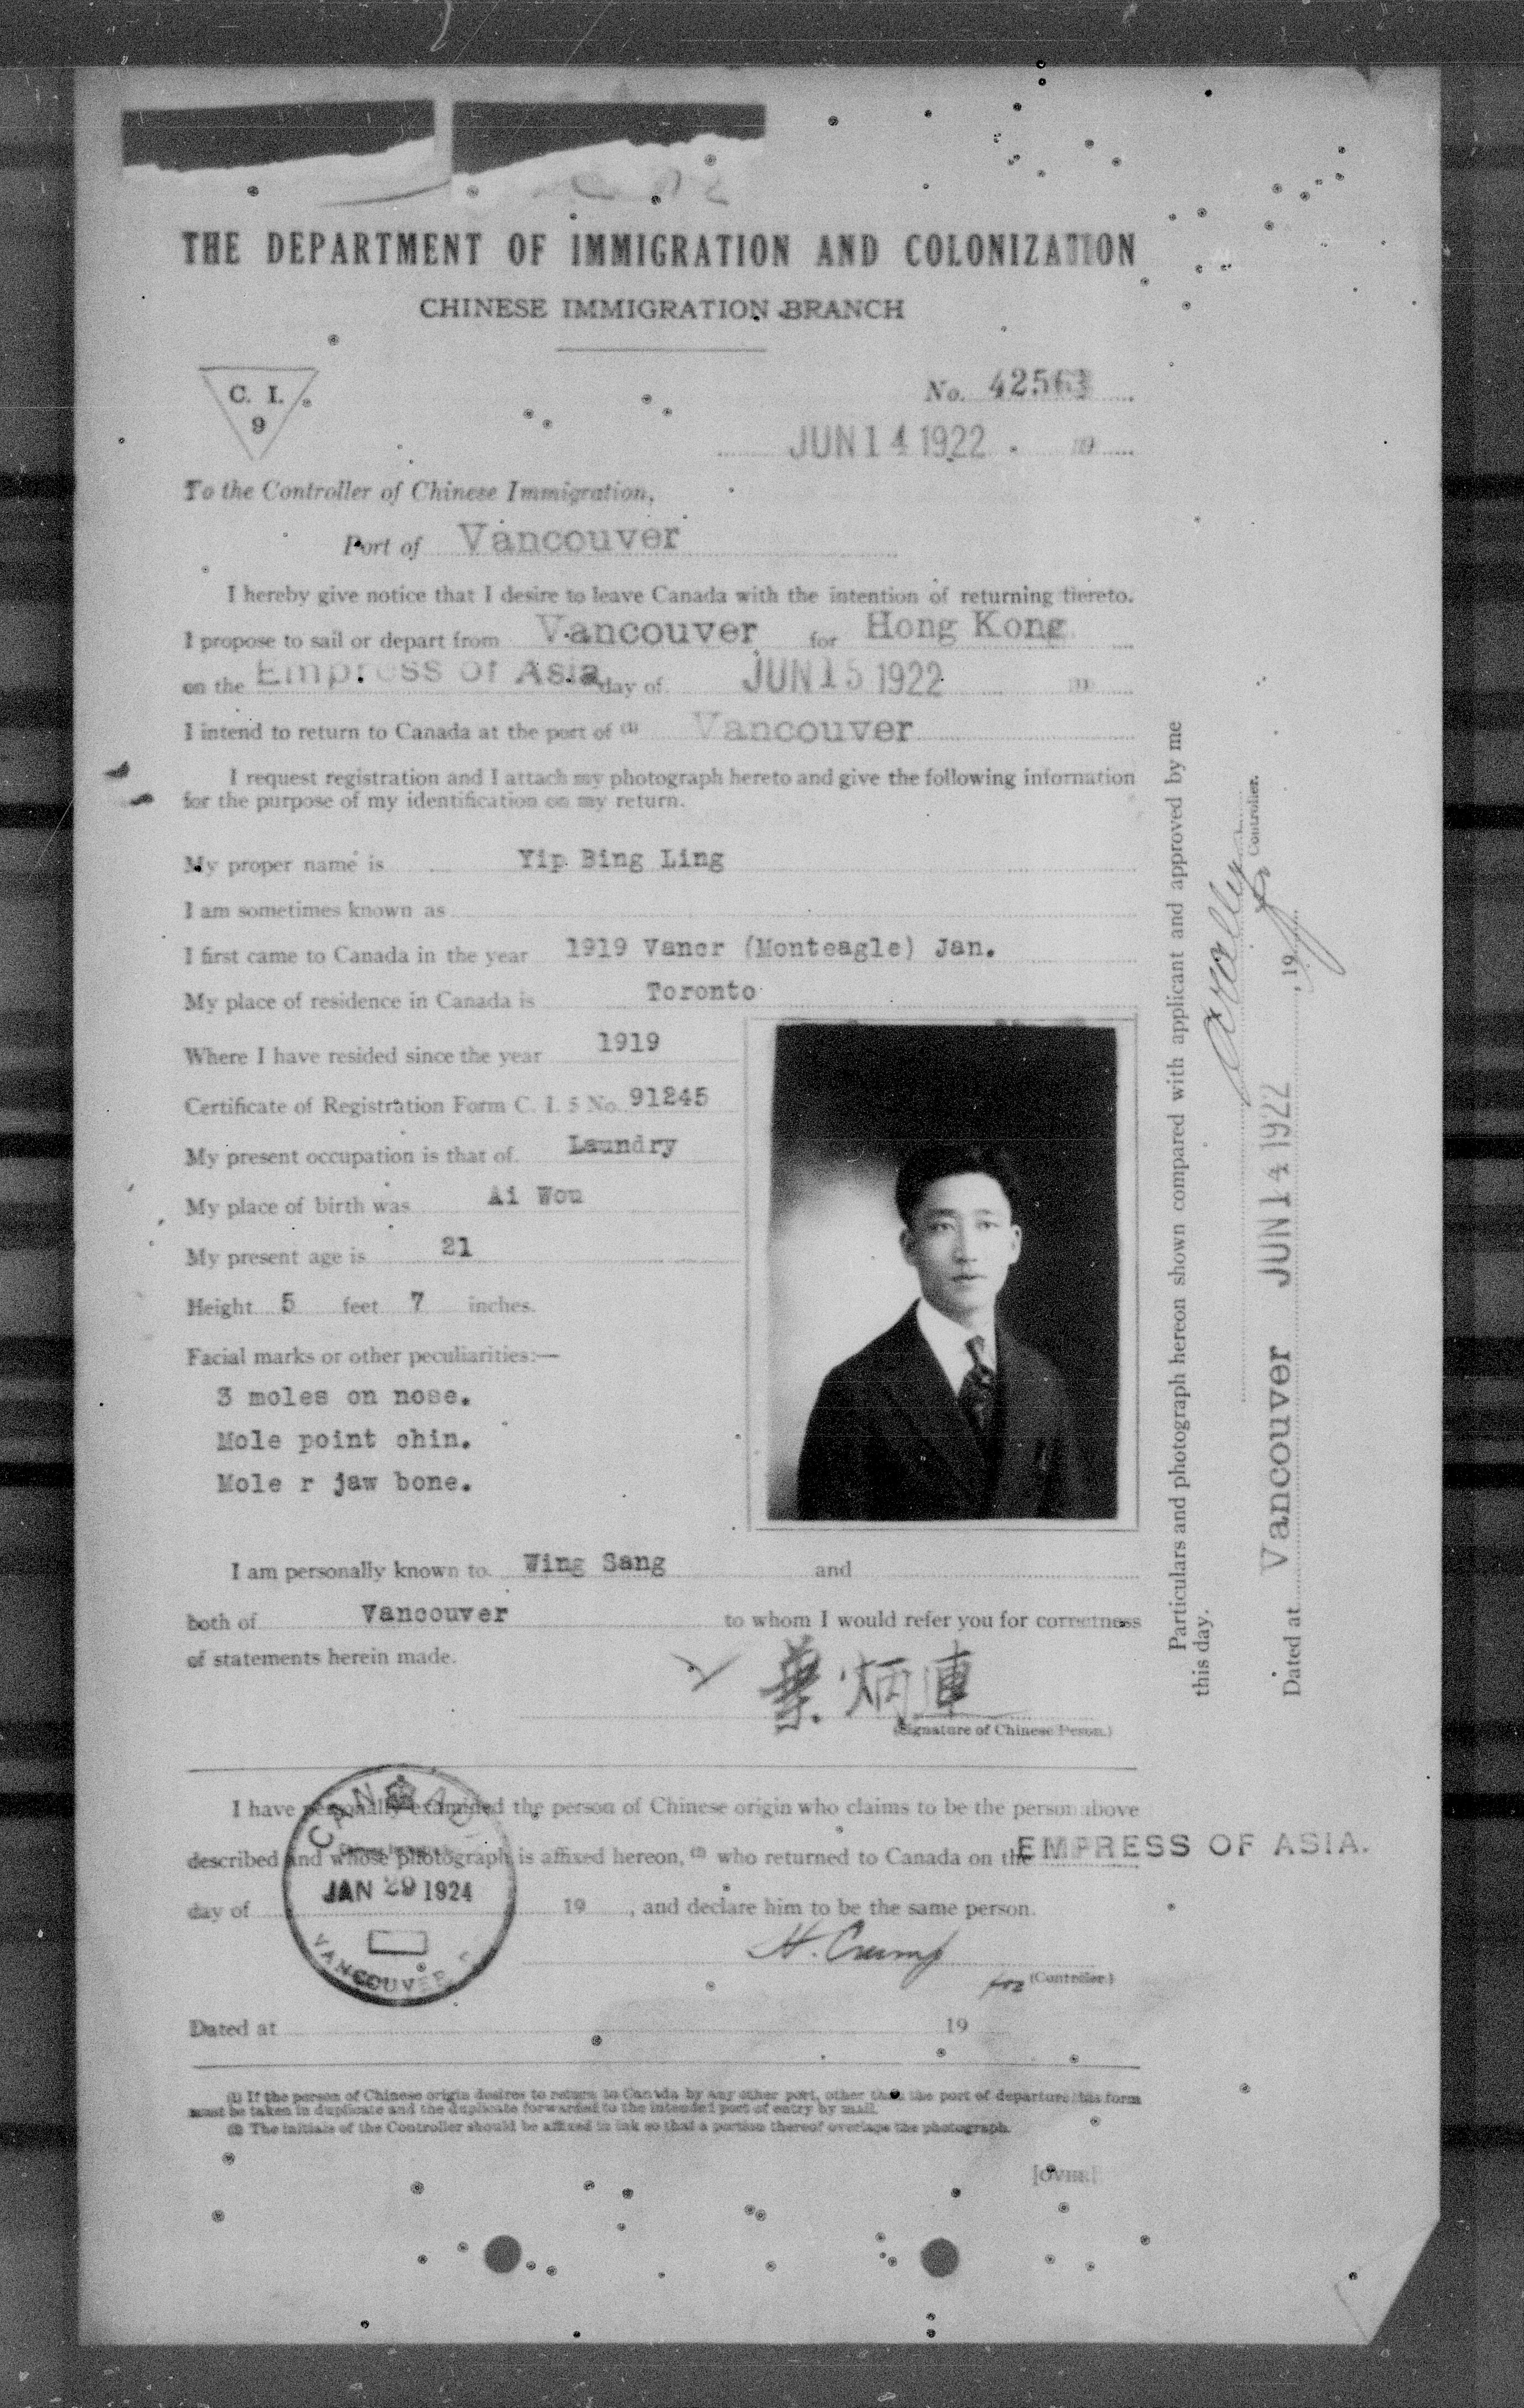 THE DEPARTMENT OF IMMIGRATION AND COLONIZATION
CHINESE IMMIGRATION BRANCH
C. I.
9
No. 42563
JUN 14 1922 19
To the Controller of Chinese Immigration,
Port of Vancouver
I hereby give notice that I desire to leave Canada with the intention of returning thereto.
I propose to sail or depart from Vancouver for Hong Kong
on the Empress of Asia day of JUN 15 1922
I intend to return to Canada at the port of (1) Vancouver
I request registration and I attach my photograph hereto and give the following information
for the purpose of my identification on my return.
My proper name is Yip Bing Ling
I am sometimes known as
I first came to Canada in the year 1919 Vancr (Monteagle) Jan.
My place of residence in Canada is Toronto
Where I have resided since the year 1919
Certificate of Registration Form C. I. 5 No. 91245
My present occupation is that of Laundry
My place of birth was Ai Wou
My present age is 21
Height 5 feet 7 inches.
Facial marks or other peculiarities:—
3 moles on nose.
Mole point chin.
Mole r jaw bone.
I am personally known to Wing Sang and
both of Vancouver to whom I would refer you for correctness
of statements herein made.
葉炳連
(Signature of Chinese Person.)
I have personally examined the person of Chinese origin who claims to be the person above
described and whose photograph is affixed hereon, (2) who returned to Canada on the EMPRESS OF ASIA.
day of 19 , and declare him to be the same person.
CANADA
JAN 29 1924
VANCOUVER
H. Crump
for (Controller.)
Dated at 19
(1) If the person of Chinese origin desires to return to Canada by any other port, other than the port of departure, this form
must be taken in duplicate and the duplicate forwarded to the intended port of entry by mail.
(2) The initials of the Controller should be affixed in ink so that a portion thereof overlaps the photograph.
[OVER]
Particulars and photograph hereon shown compared with applicant and approved by me
this day.
Controller.
Dated at Vancouver JUN 14 1922 , 19